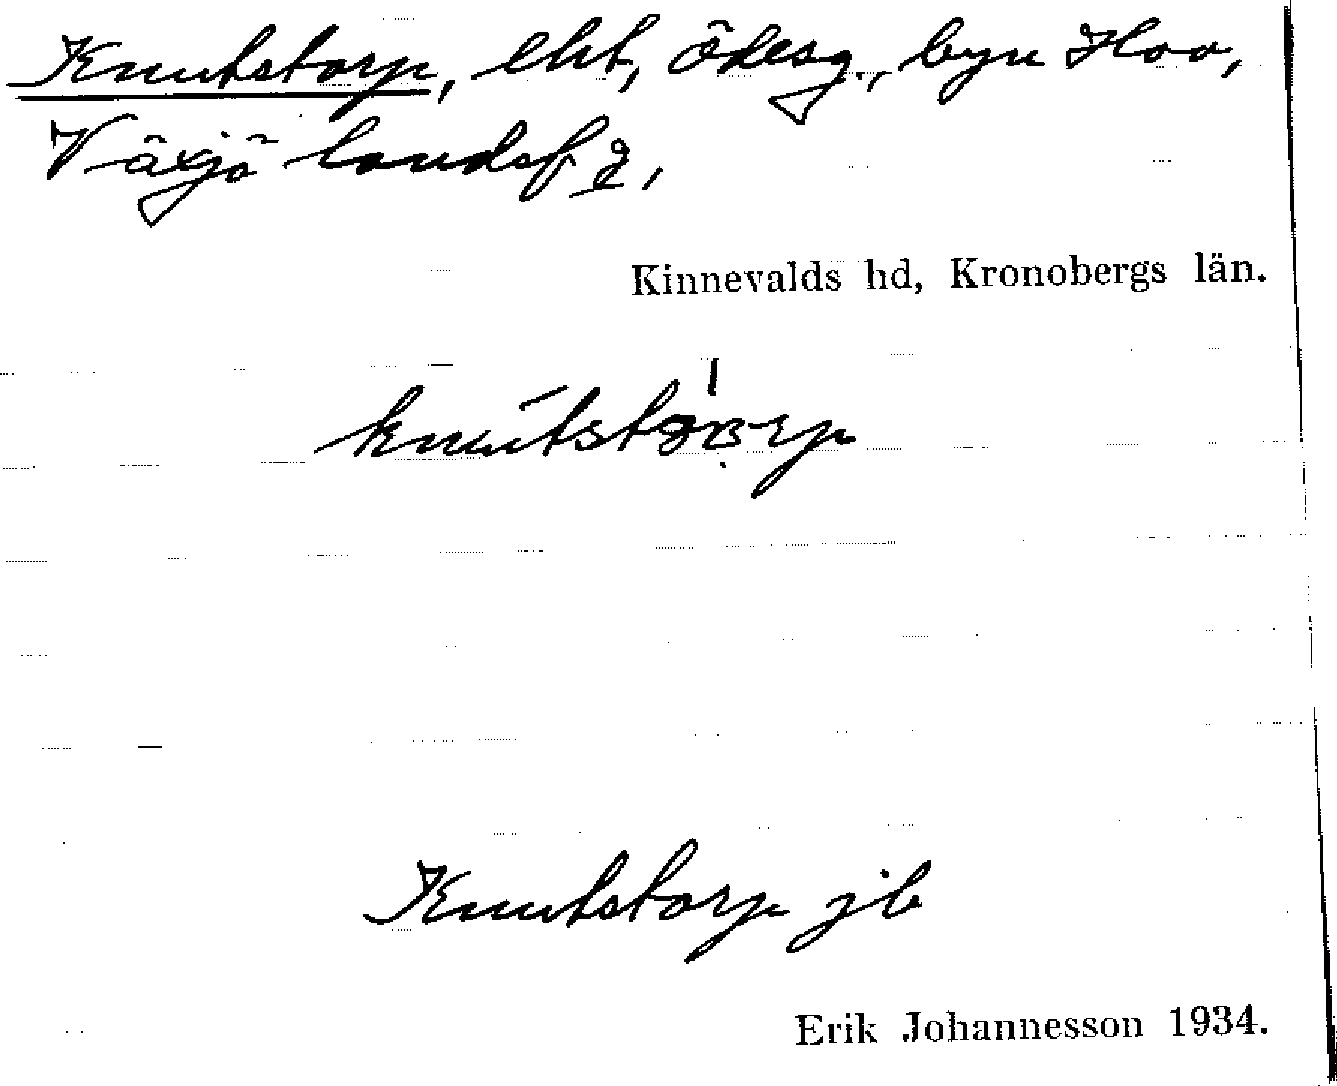 Knutstorp, eht, ödesg., byn Hov,
Växjö landsf g,
Kinnevalds hd, Kronobergs län.
Knutstorp jb
Erik Johannesson 1934.